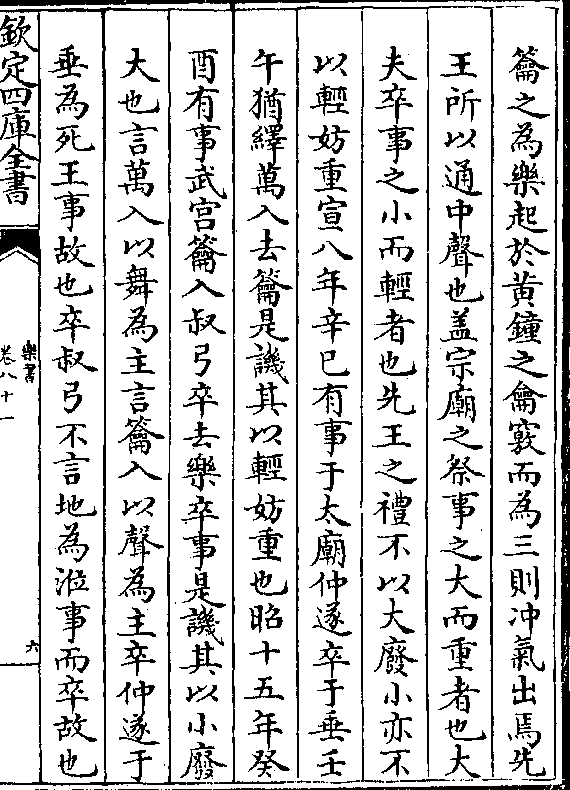 籥之為樂起於黃鐘之龠竅而為三則冲氣出焉先
王所以通中聲也盖宗廟之祭事之大而重者也大
夫卒事之小而輕者也先王之禮不以大廢小亦不
以輕妨重宣八年辛巳有事于太廟仲遂卒于垂壬
午猶繹萬入去籥是譏其以輕妨重也昭十五年癸
酉有事武宫籥入叔弓卒去樂卒事是譏其以小廢
大也言萬入以舞為主言籥入以聲為主卒仲遂于
垂為死王事故也卒叔弓不言地為涖事而卒故也
欽定四庫全書
樂書
卷八十一
六